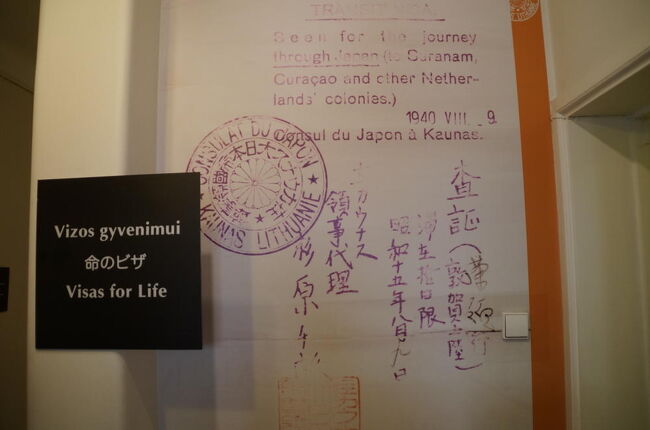 TRANSIT VISA.
Seen for the journey
through Japan (to Suranam,
Curaçao and other Nether-
lands' colonies.)
1940 VIII. 9.
Consul du Japon à Kaunas.
CONSULAT DU JAPON
KAUNAS LITHUANIE
査証(敦賀上陸)
昭和十五年八月九日
カウナス
領事代理
杉原
Vizos gyvenimui
命のビザ
Visas for Life